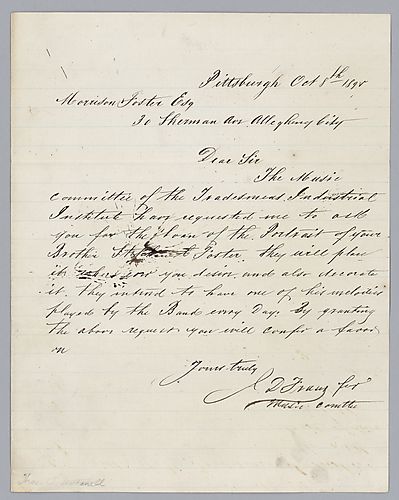 Pittsburgh Oct 8th 1895
Morrison Foster Esq
30 Sherman Av. Allegheny City
Dear Sir
The Music
committee of the Tradesmens Industrial
Institute have requested me to ask
you for the loan of the Portrait of your
Brother Foster. they will place
it you desire and also decorate
it. they intend to have one of his melodies
played by the Band every Day. By granting
the above request you will confer a favor
on
Yours truly
D Franz for
Music Comttee